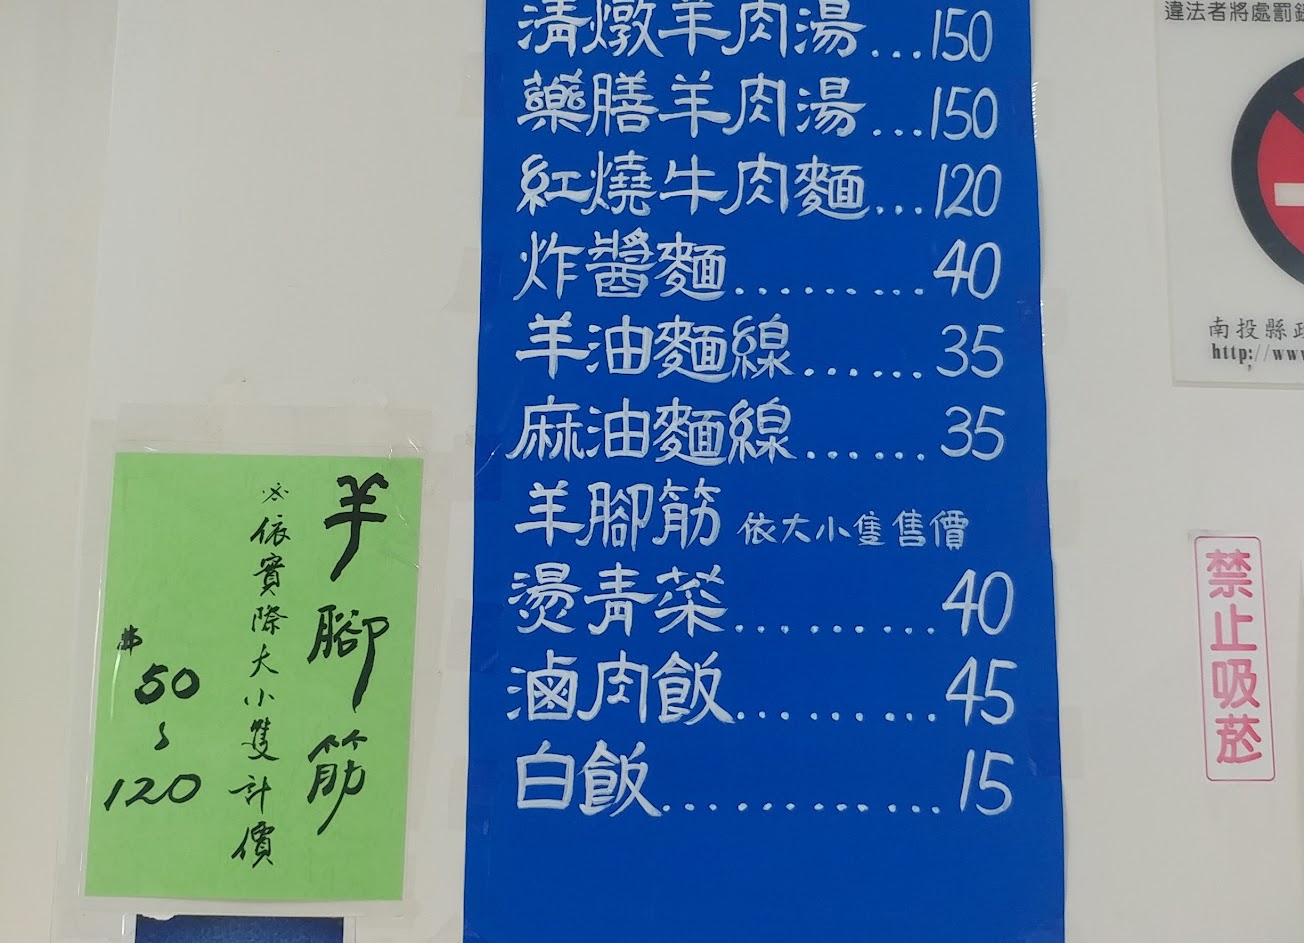 清燉羊肉湯...150
藥膳羊肉湯...150
紅燒牛肉麵...120
炸醬麵.........40
羊油麵線......35
麻油麵線......35
羊腳筋 依大小隻售價
燙青菜.........40
滷肉飯.........45
白飯............15
羊腳筋
※依實際大小隻計價
50
~
120
違法者將處罰
南投縣政
http://www
禁止吸菸